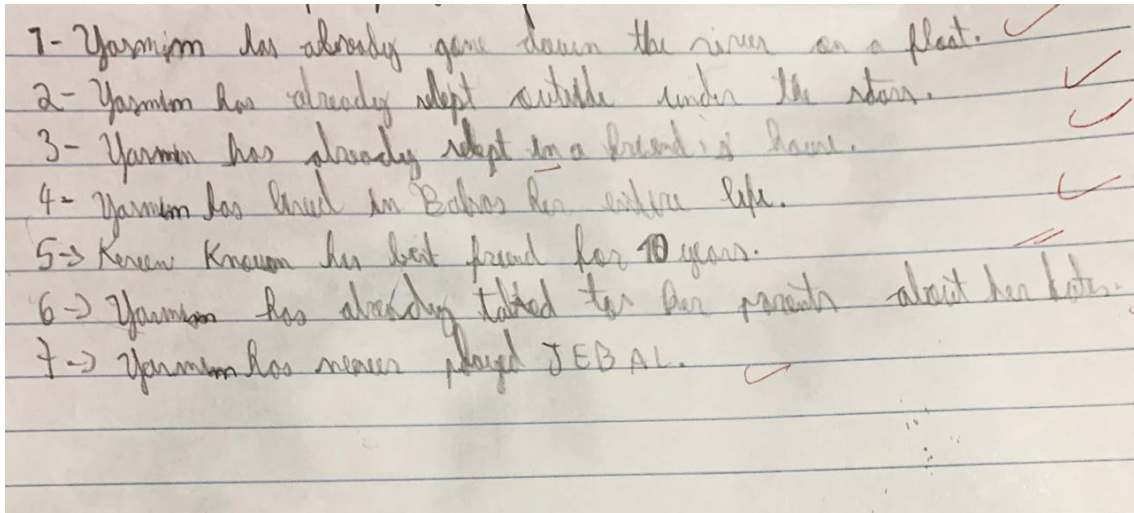 1- Yasmim has already gone down the river on a float.
2- Yasmim has already slept outside under the stars.
3- Yasmin has already slept in a friend's house.
4- Yasmim has lived in Bahras her entire life.
5-> Kereen Known her best friend for 10 years.
6-> Yasmim has already talked to her parents about her
7-> Yasmim has never played JEBAL.